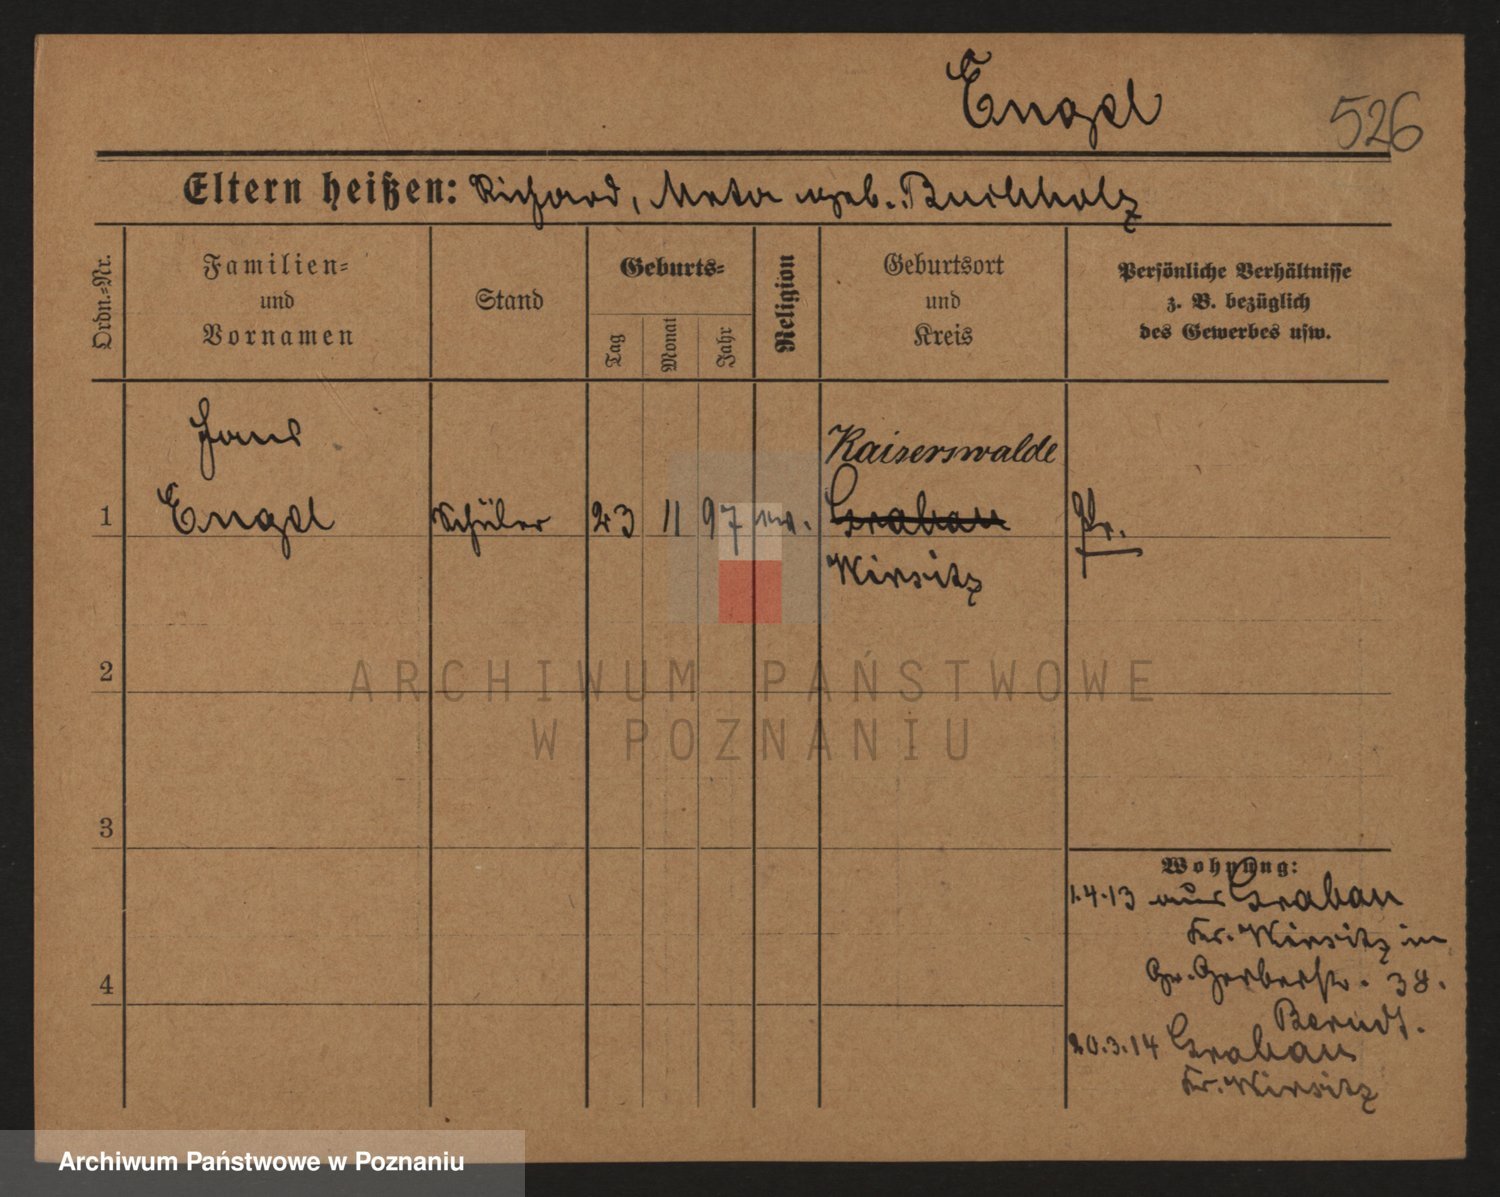 Engel
526
Eltern heißen: Richard, Meta geb. Buchholz
Ordn.-Nr.
Familien- und Vornamen
Stand
Geburts-
Tag
Monat
Jahr
Religion
Geburtsort und Kreis
Persönliche Verhältnisse z. B. bezüglich des Gewerbes usw.
Hans
Kaiserswalde
1 Engel Schüler 23 11 97 ev. Grabau Pr.
Wirsitz
2
3
4
Wohnung:
1.4.13 aus Grabau
Kr. Wirsitz in
Gr. Gerberstr. 38.
Berndt.
20.3.14 Grabau
Kr. Wirsitz
ARCHIWUM PAŃSTWOWE
W POZNANIU
Archiwum Państwowe w Poznaniu